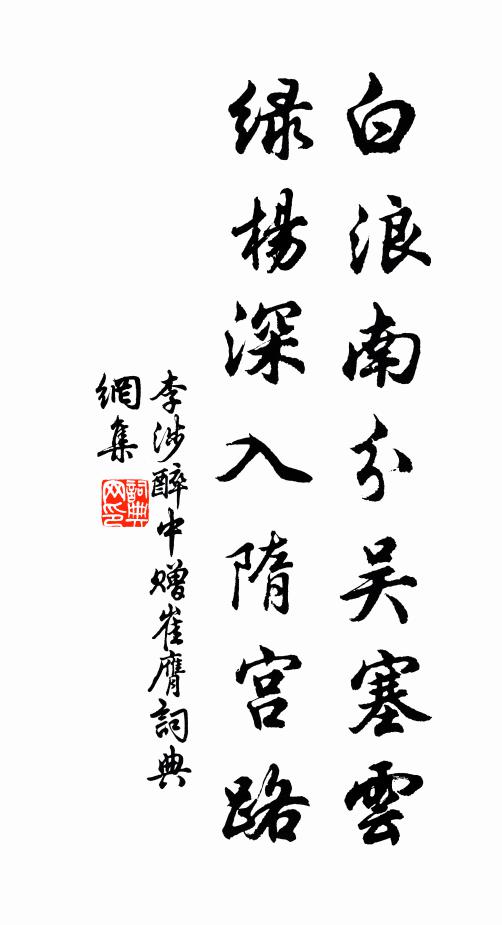 白浪南分吴塞雲
绿楊深入隋宫路
李涉醉中赠崔膺詞典
網集
詞典
网印